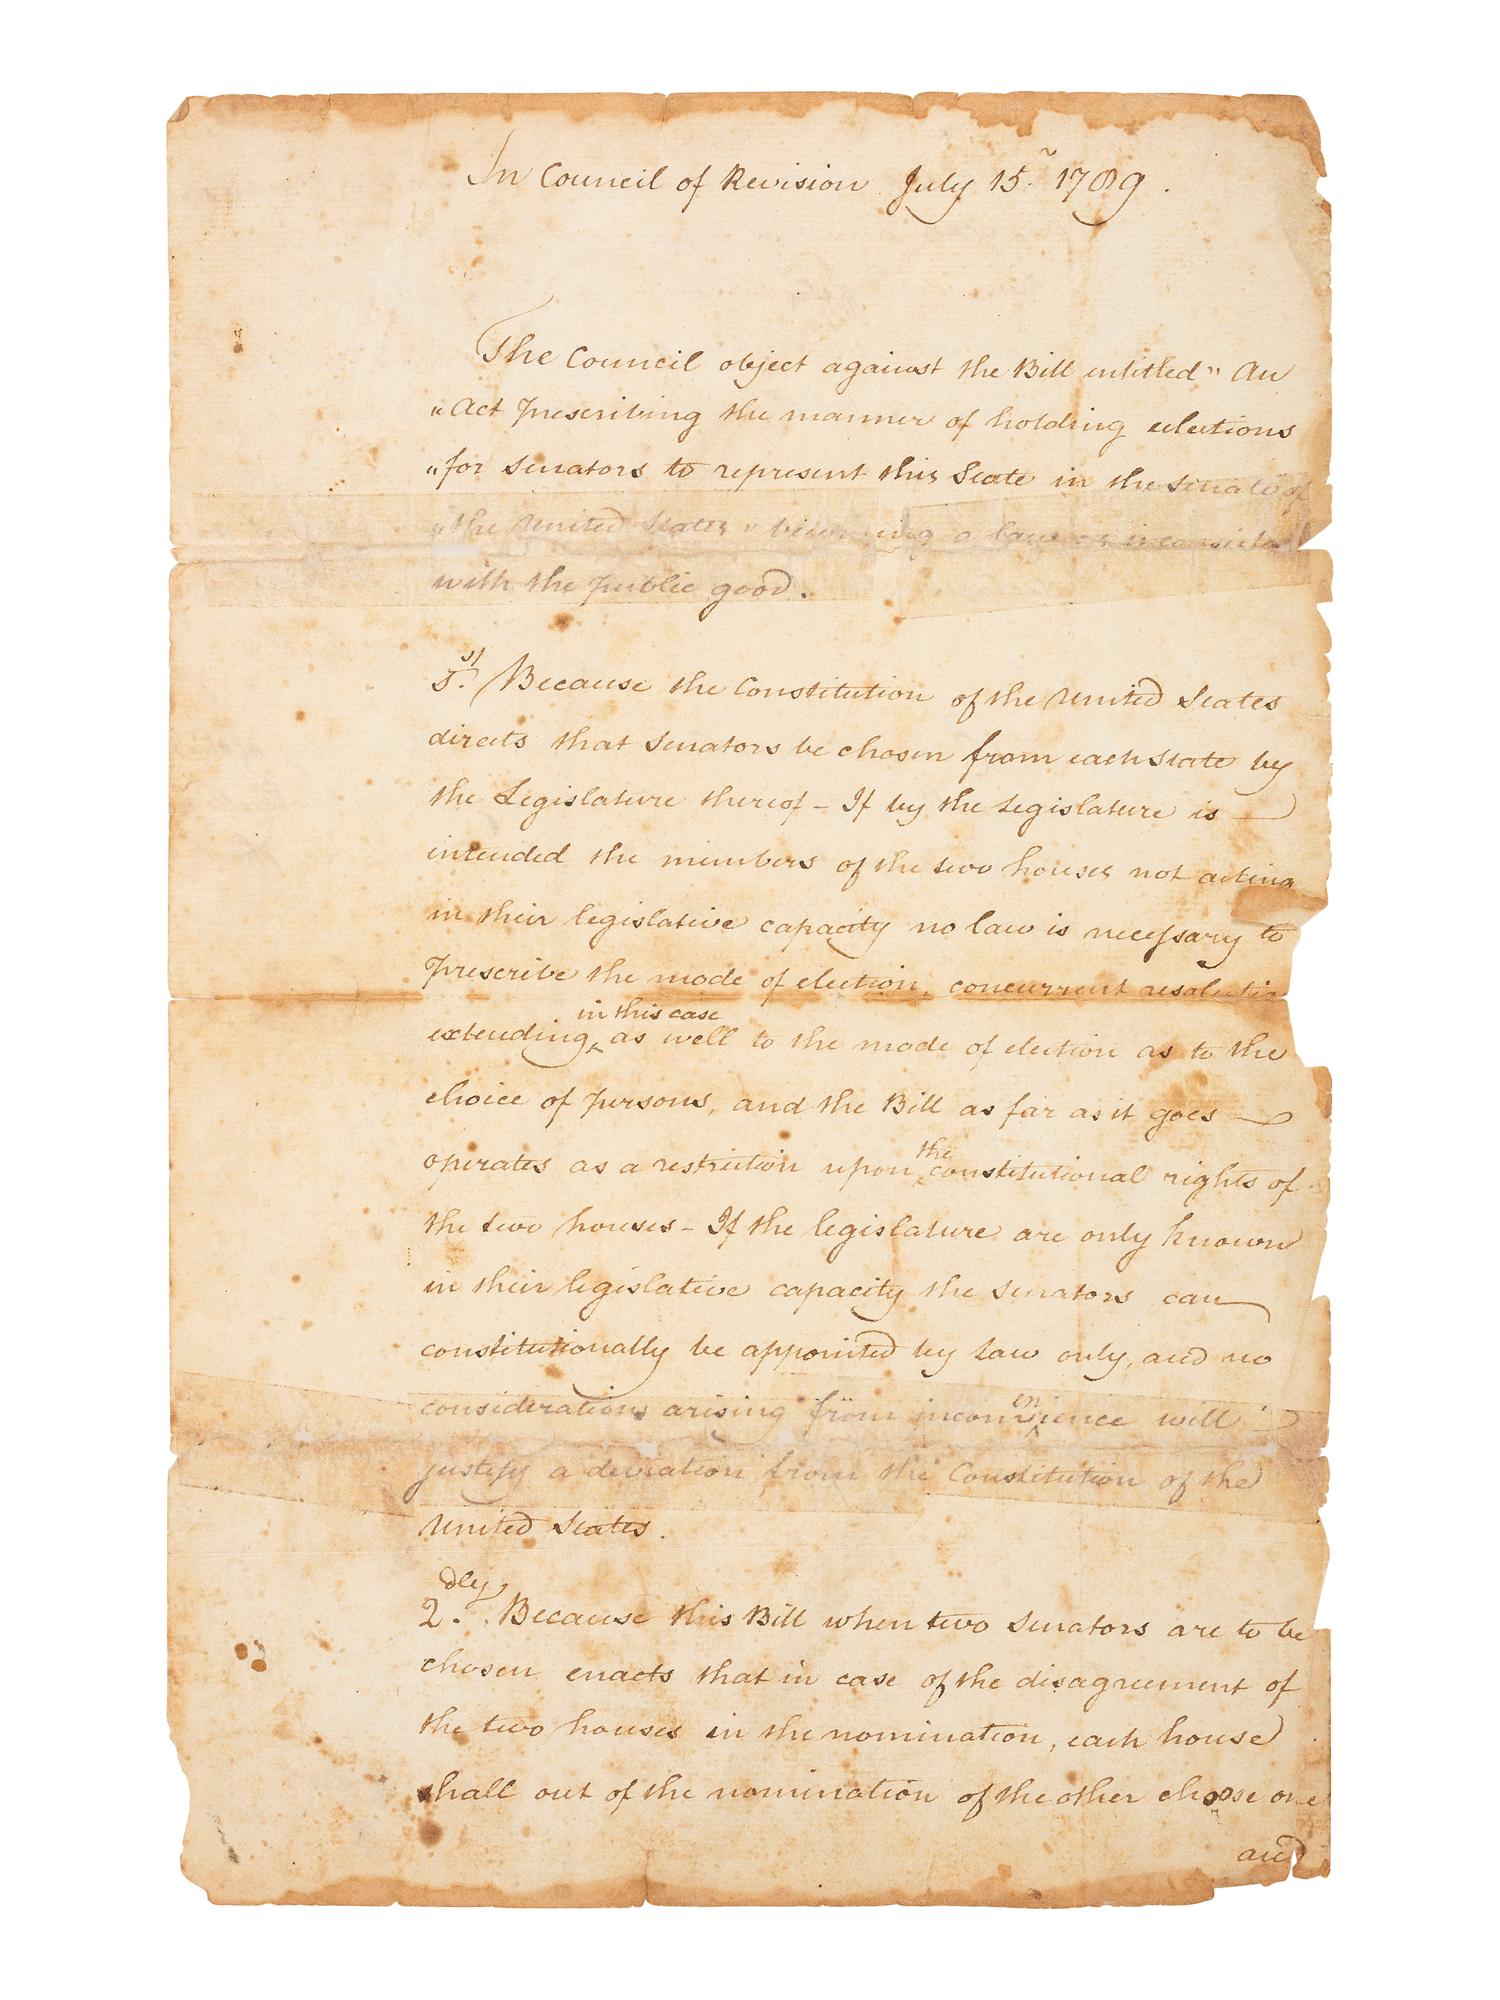 In Council of Revision July 15.th 1789.
The Council object against the Bill entitled" An
"Act prescribing the manner of holding elections
"for senators to represent this State in the senate of
"the United States" becoming a law as inconsistent
with the public good.
1st. Because the Constitution of the United States
directs that senators be chosen from each State by
the Legislature thereof – If by the Legislature is —
intended the members of the two houses not acting
in their legislative capacity no law is necessary to
prescribe the mode of election, concurrent resolution
in this case
extending, ^ as well to the mode of election as to the
choice of persons, and the Bill as far as it goes —
the
operates as a restriction upon ^ constitutional rights of
the two houses – If the legislature are only known
in their legislative capacity the senators can
constitutionally be appointed by law only, and no
en
considerations arising from inconv^ience will
justify a deviation from the Constitution of the
United States.
2.dly Because this Bill when two senators are to be
chosen enacts that in case of the disagreement of
the two houses in the nomination, each house
shall out of the nomination of the other choose one
and